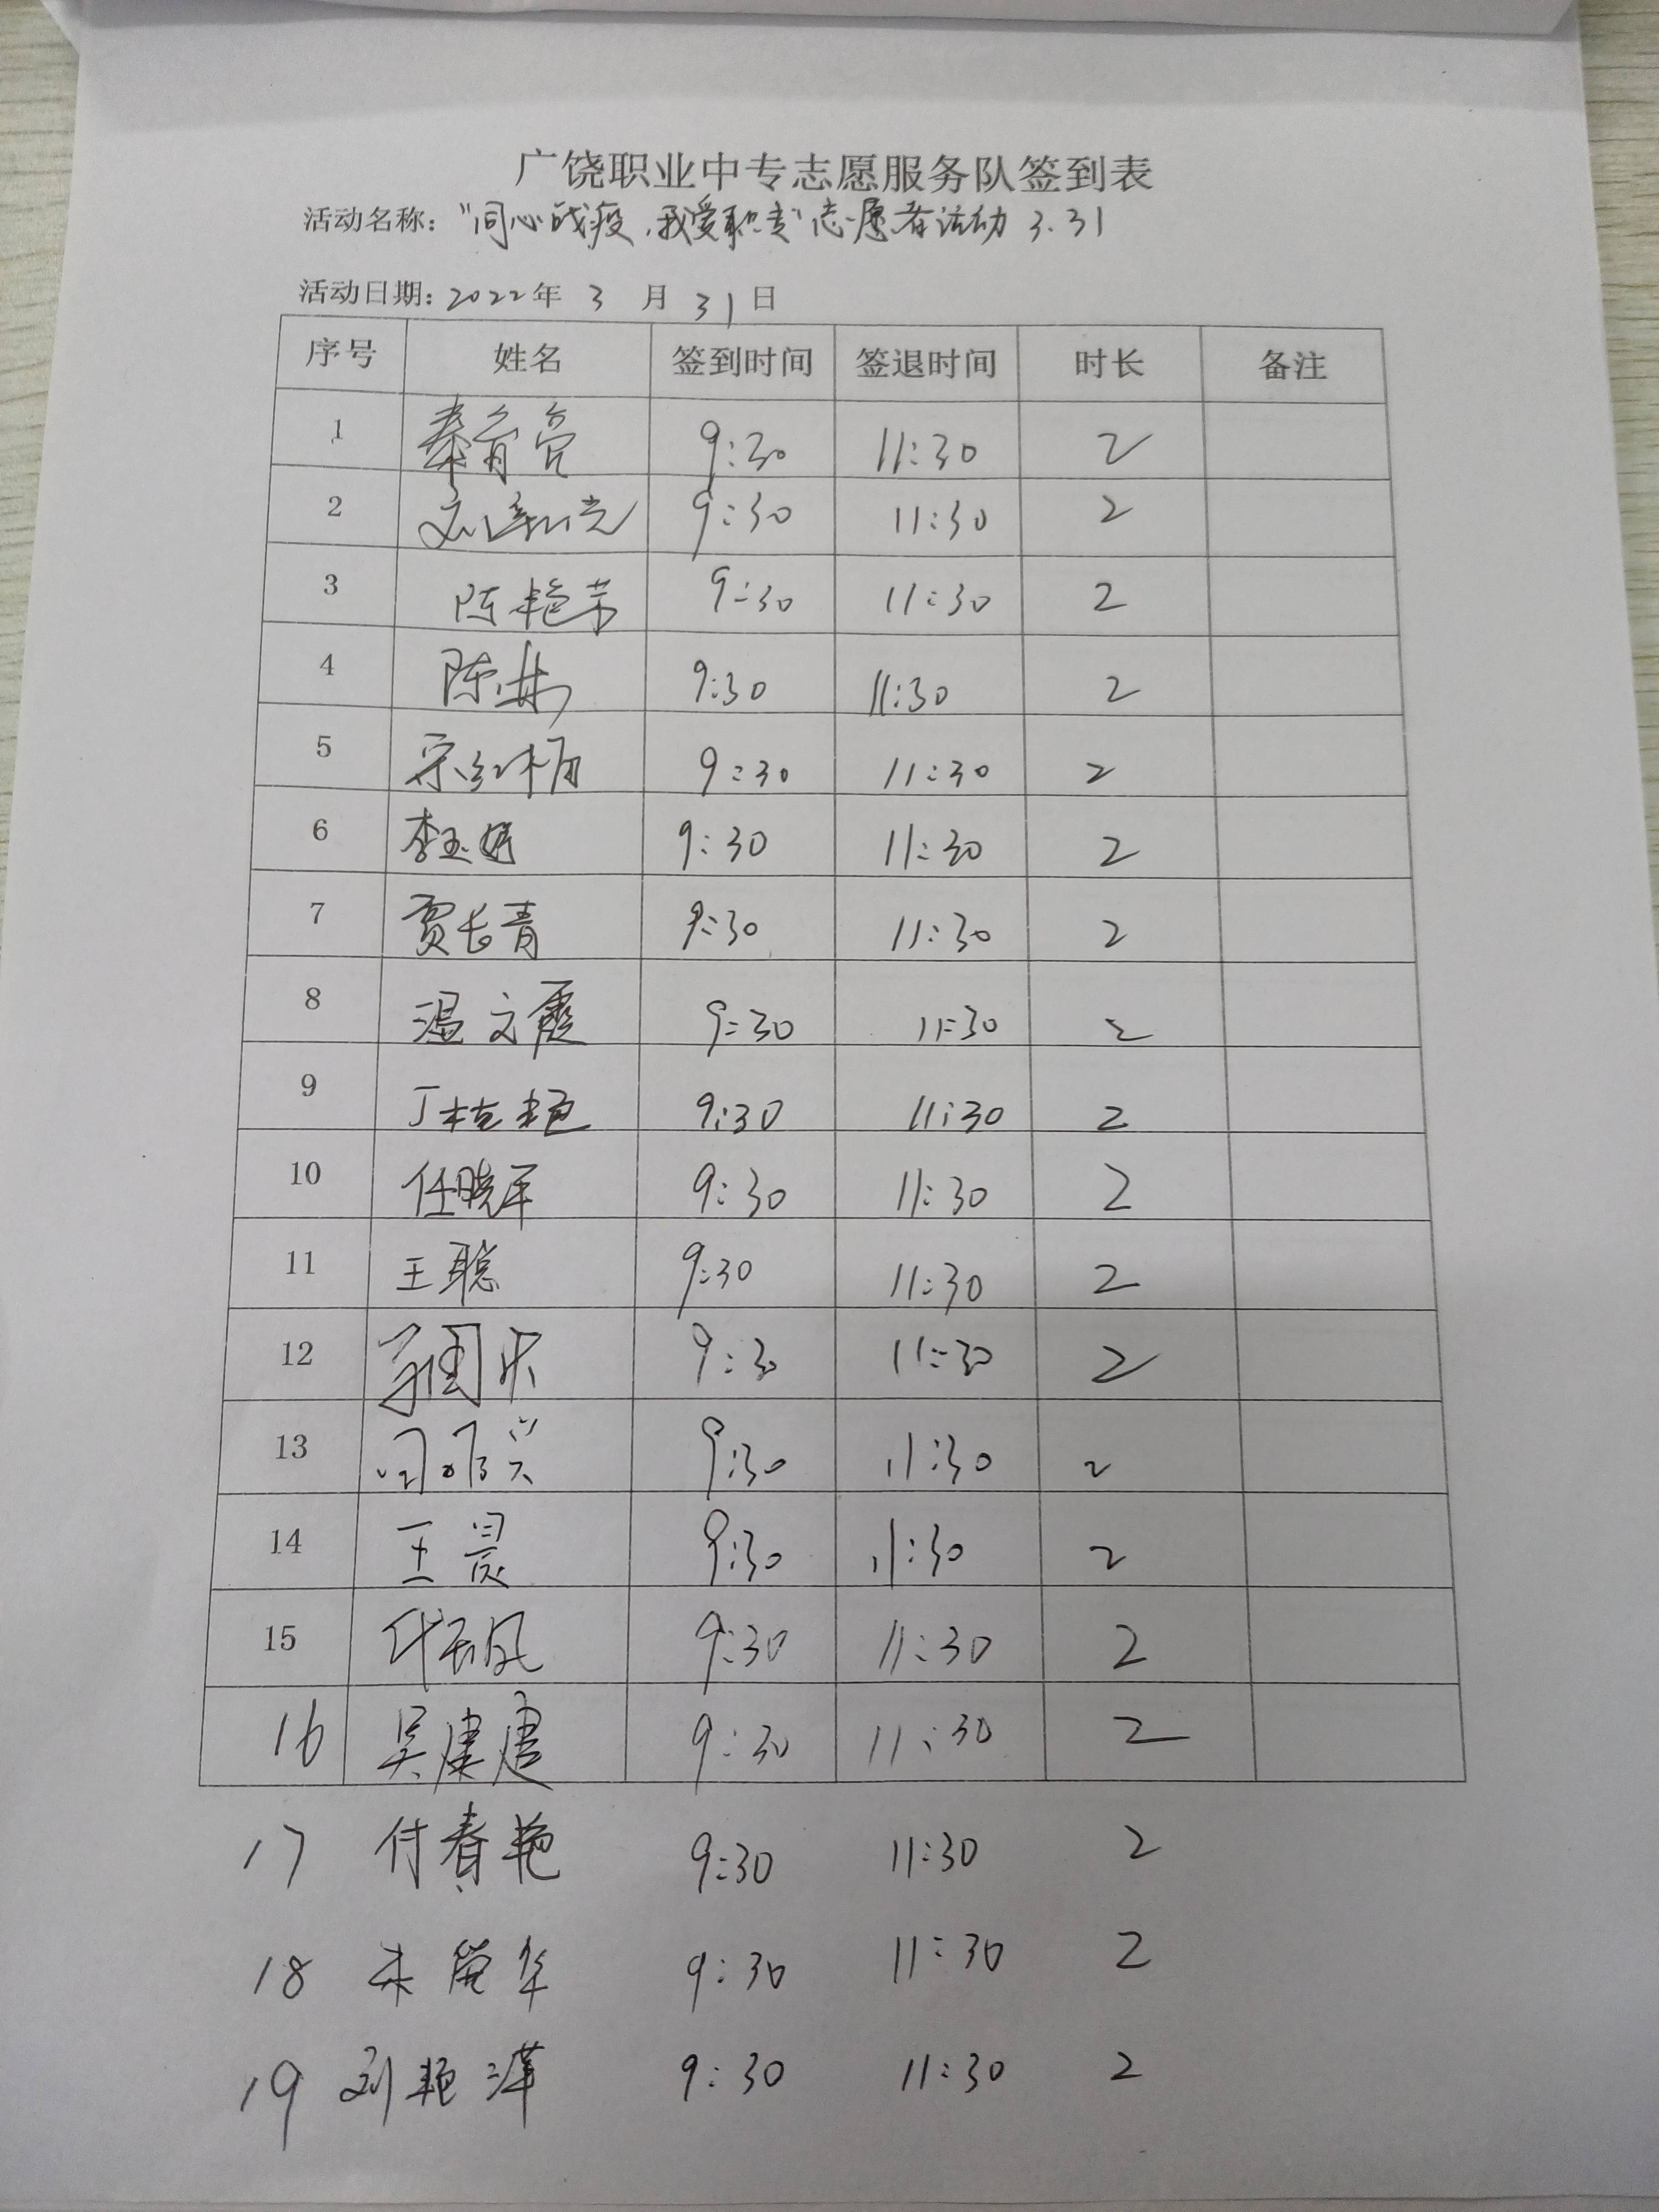 广饶职业中专志愿服务队签到表
活动名称："同心战疫，我爱职专"志愿者活动 3.31
活动日期：2022年 3 月 31日
序号 姓名 签到时间 签退时间 时长 备注
1 秦育亮 9:30 11:30 2
2 9:30 11:30 2
3 陈艳芳 9:30 11:30 2
4 陈 9:30 11:30 2
5 宋红梅 9:30 11:30 2
6 李玉婷 9:30 11:30 2
7 贾长青 9:30 11:30 2
8 温文霞 9:30 11:30 2
9 丁桂艳 9:30 11:30 2
10 任晓军 9:30 11:30 2
11 王聪 9:30 11:30 2
12 9:30 11:30 2
13 9:30 11:30 2
14 王晨 9:30 11:30 2
15 9:30 11:30 2
16 吴康康 9:30 11:30 2
17 付春艳 9:30 11:30 2
18 9:30 11:30 2
19 刘艳萍 9:30 11:30 2